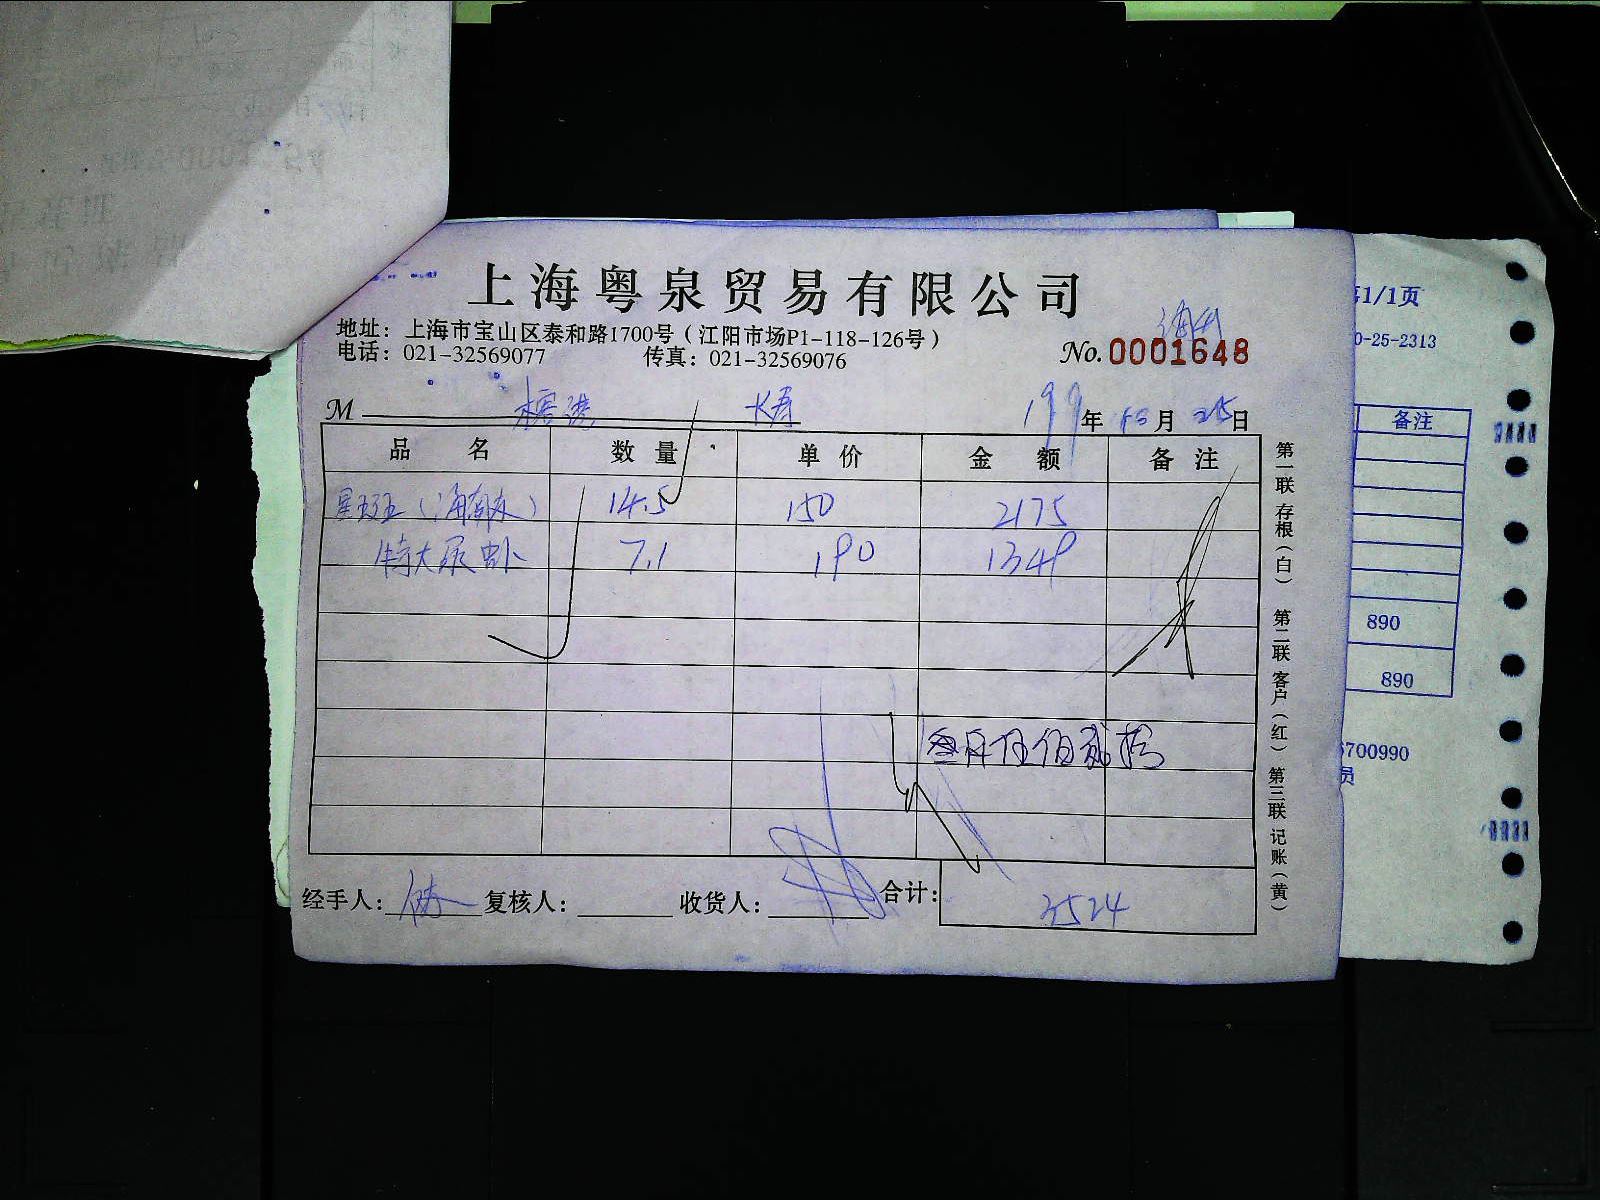 上海粤泉贸易有限公司
地址：上海市宝山区泰和路1700号（江阳市场P1-118-126号）
电话：021-32569077 传真：021-32569076
No.0001648
M 年 月 日
品 名 数 量 单 价 金 额 备 注
14.5 150 2175
特大尿虾 7.1 190 1349
经手人： 复核人： 收货人： 合计： 3524
第一联 存根（白） 第二联 客户（红） 第三联 记账（黄）
1/1页
0-25-2313
备注
890
890
700990
员